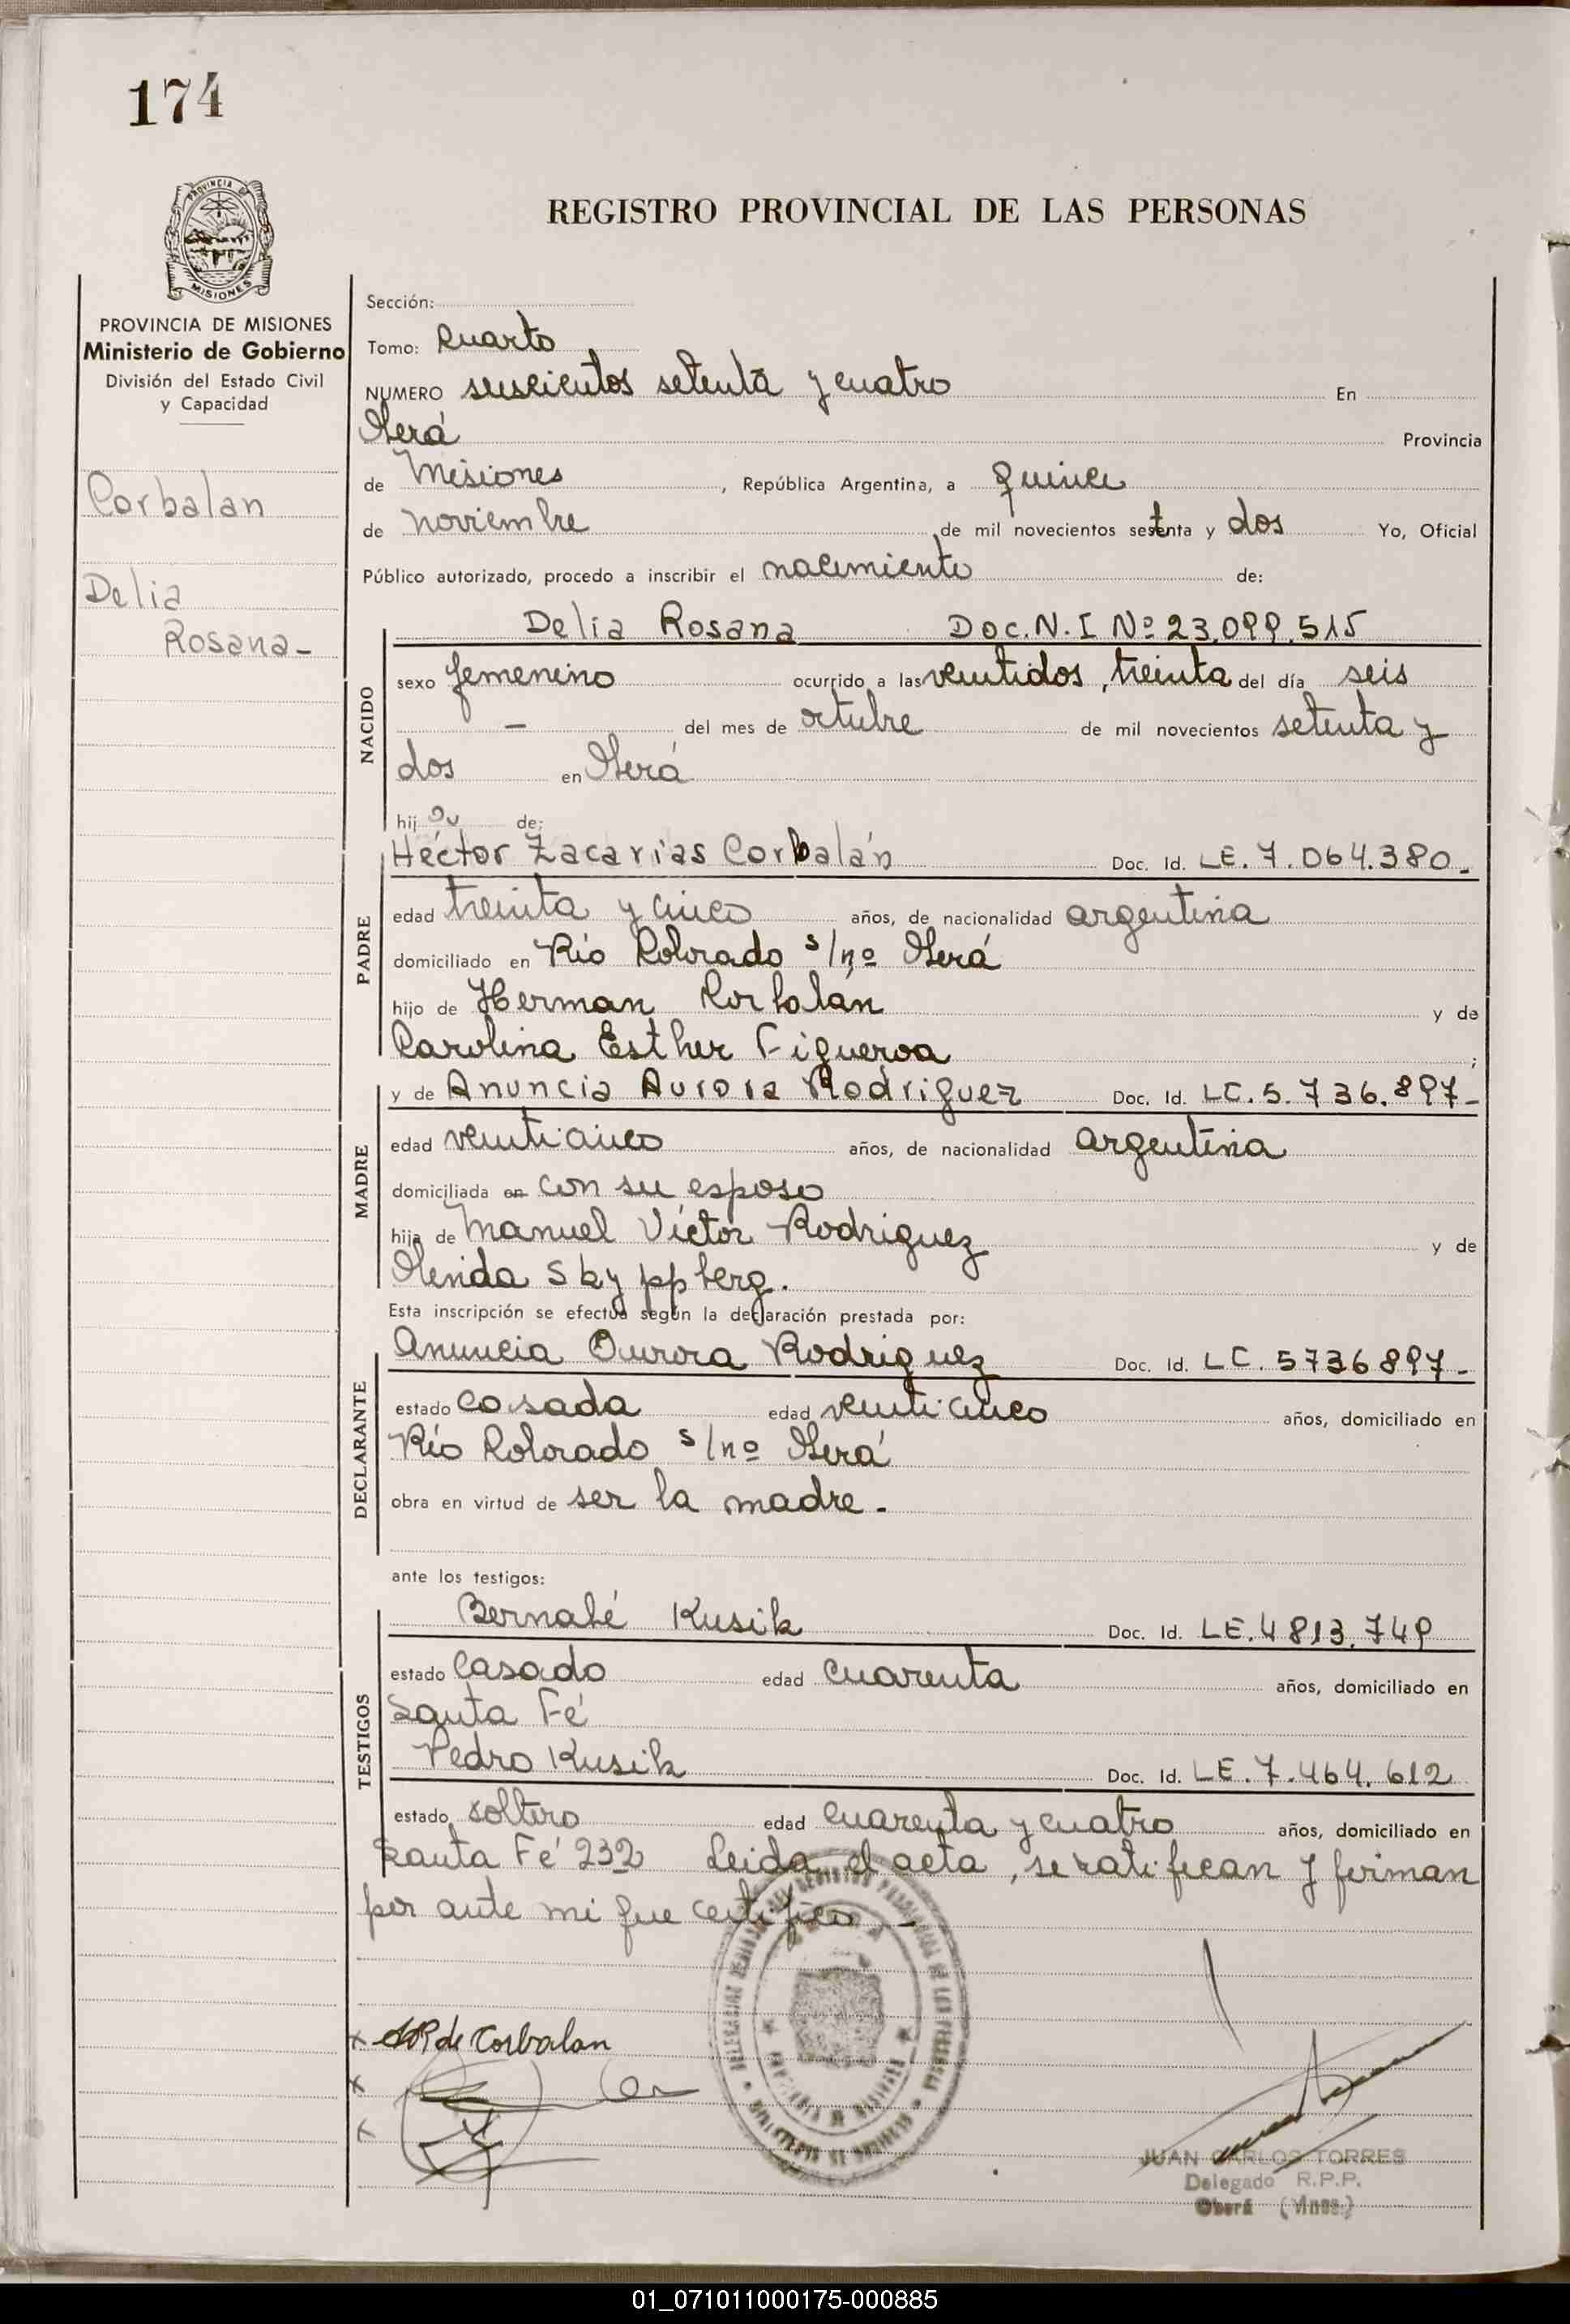 174
PROVINCIA DE
MISIONES
REGISTRO PROVINCIAL DE LAS PERSONAS
PROVINCIA DE MISIONES
Ministerio de Gobierno
División del Estado Civil
y Capacidad
Corbalan
Delia
Rosana-
Sección:
Tomo: Cuarto
NUMERO seiscientos setenta y cuatro En
Oberá Provincia
de Misiones, República Argentina, a quince
de noviembre de mil novecientos setenta y dos Yo, Oficial
Público autorizado, procedo a inscribir el nacimiento de:
NACIDO
Delia Rosana Doc.N.I Nº 23.099.515
sexo femenino ocurrido a las veintidos, treinta del día seis
- del mes de octubre de mil novecientos setenta y
dos en Oberá
hij a de:
PADRE
Héctor Zacarias Corbalán Doc. Id. LE. 7.064.380-
edad treinta y cinco años, de nacionalidad argentina
domiciliado en Río Colorado s/nº Oberá
hijo de Herman Corbalán y de
Carolina Esther Figueroa ;
MADRE
y de Anuncia Aurora Rodriguez Doc. Id. LC. 5.736.897-
edad veinticinco años, de nacionalidad argentina
domiciliada en con su esposo
hija de Manuel Víctor Rodriguez y de
Olenida Skyppberg.
Esta inscripción se efectua según la declaración prestada por:
DECLARANTE
Anuncia Aurora Rodriguez Doc. Id. LC. 5736897-
estado casada edad veinticinco años, domiciliado en
Río Colorado s/nº Oberá
obra en virtud de ser la madre.
ante los testigos:
TESTIGOS
Bernabé Kusik Doc. Id. LE. 4813.749
estado casado edad cuarenta años, domiciliado en
Santa Fé
Pedro Kusik Doc. Id. LE. 7.464.612
estado soltero edad cuarenta y cuatro años, domiciliado en
Santa Fé 232 Leida el acta, se ratifican y firman
por ante mi que certifico.-
x AR de Corbalan
x
x
JUAN CARLOS TORRES
Delegado R.P.P.
Oberá (Mnes.)
01_071011000175-000885